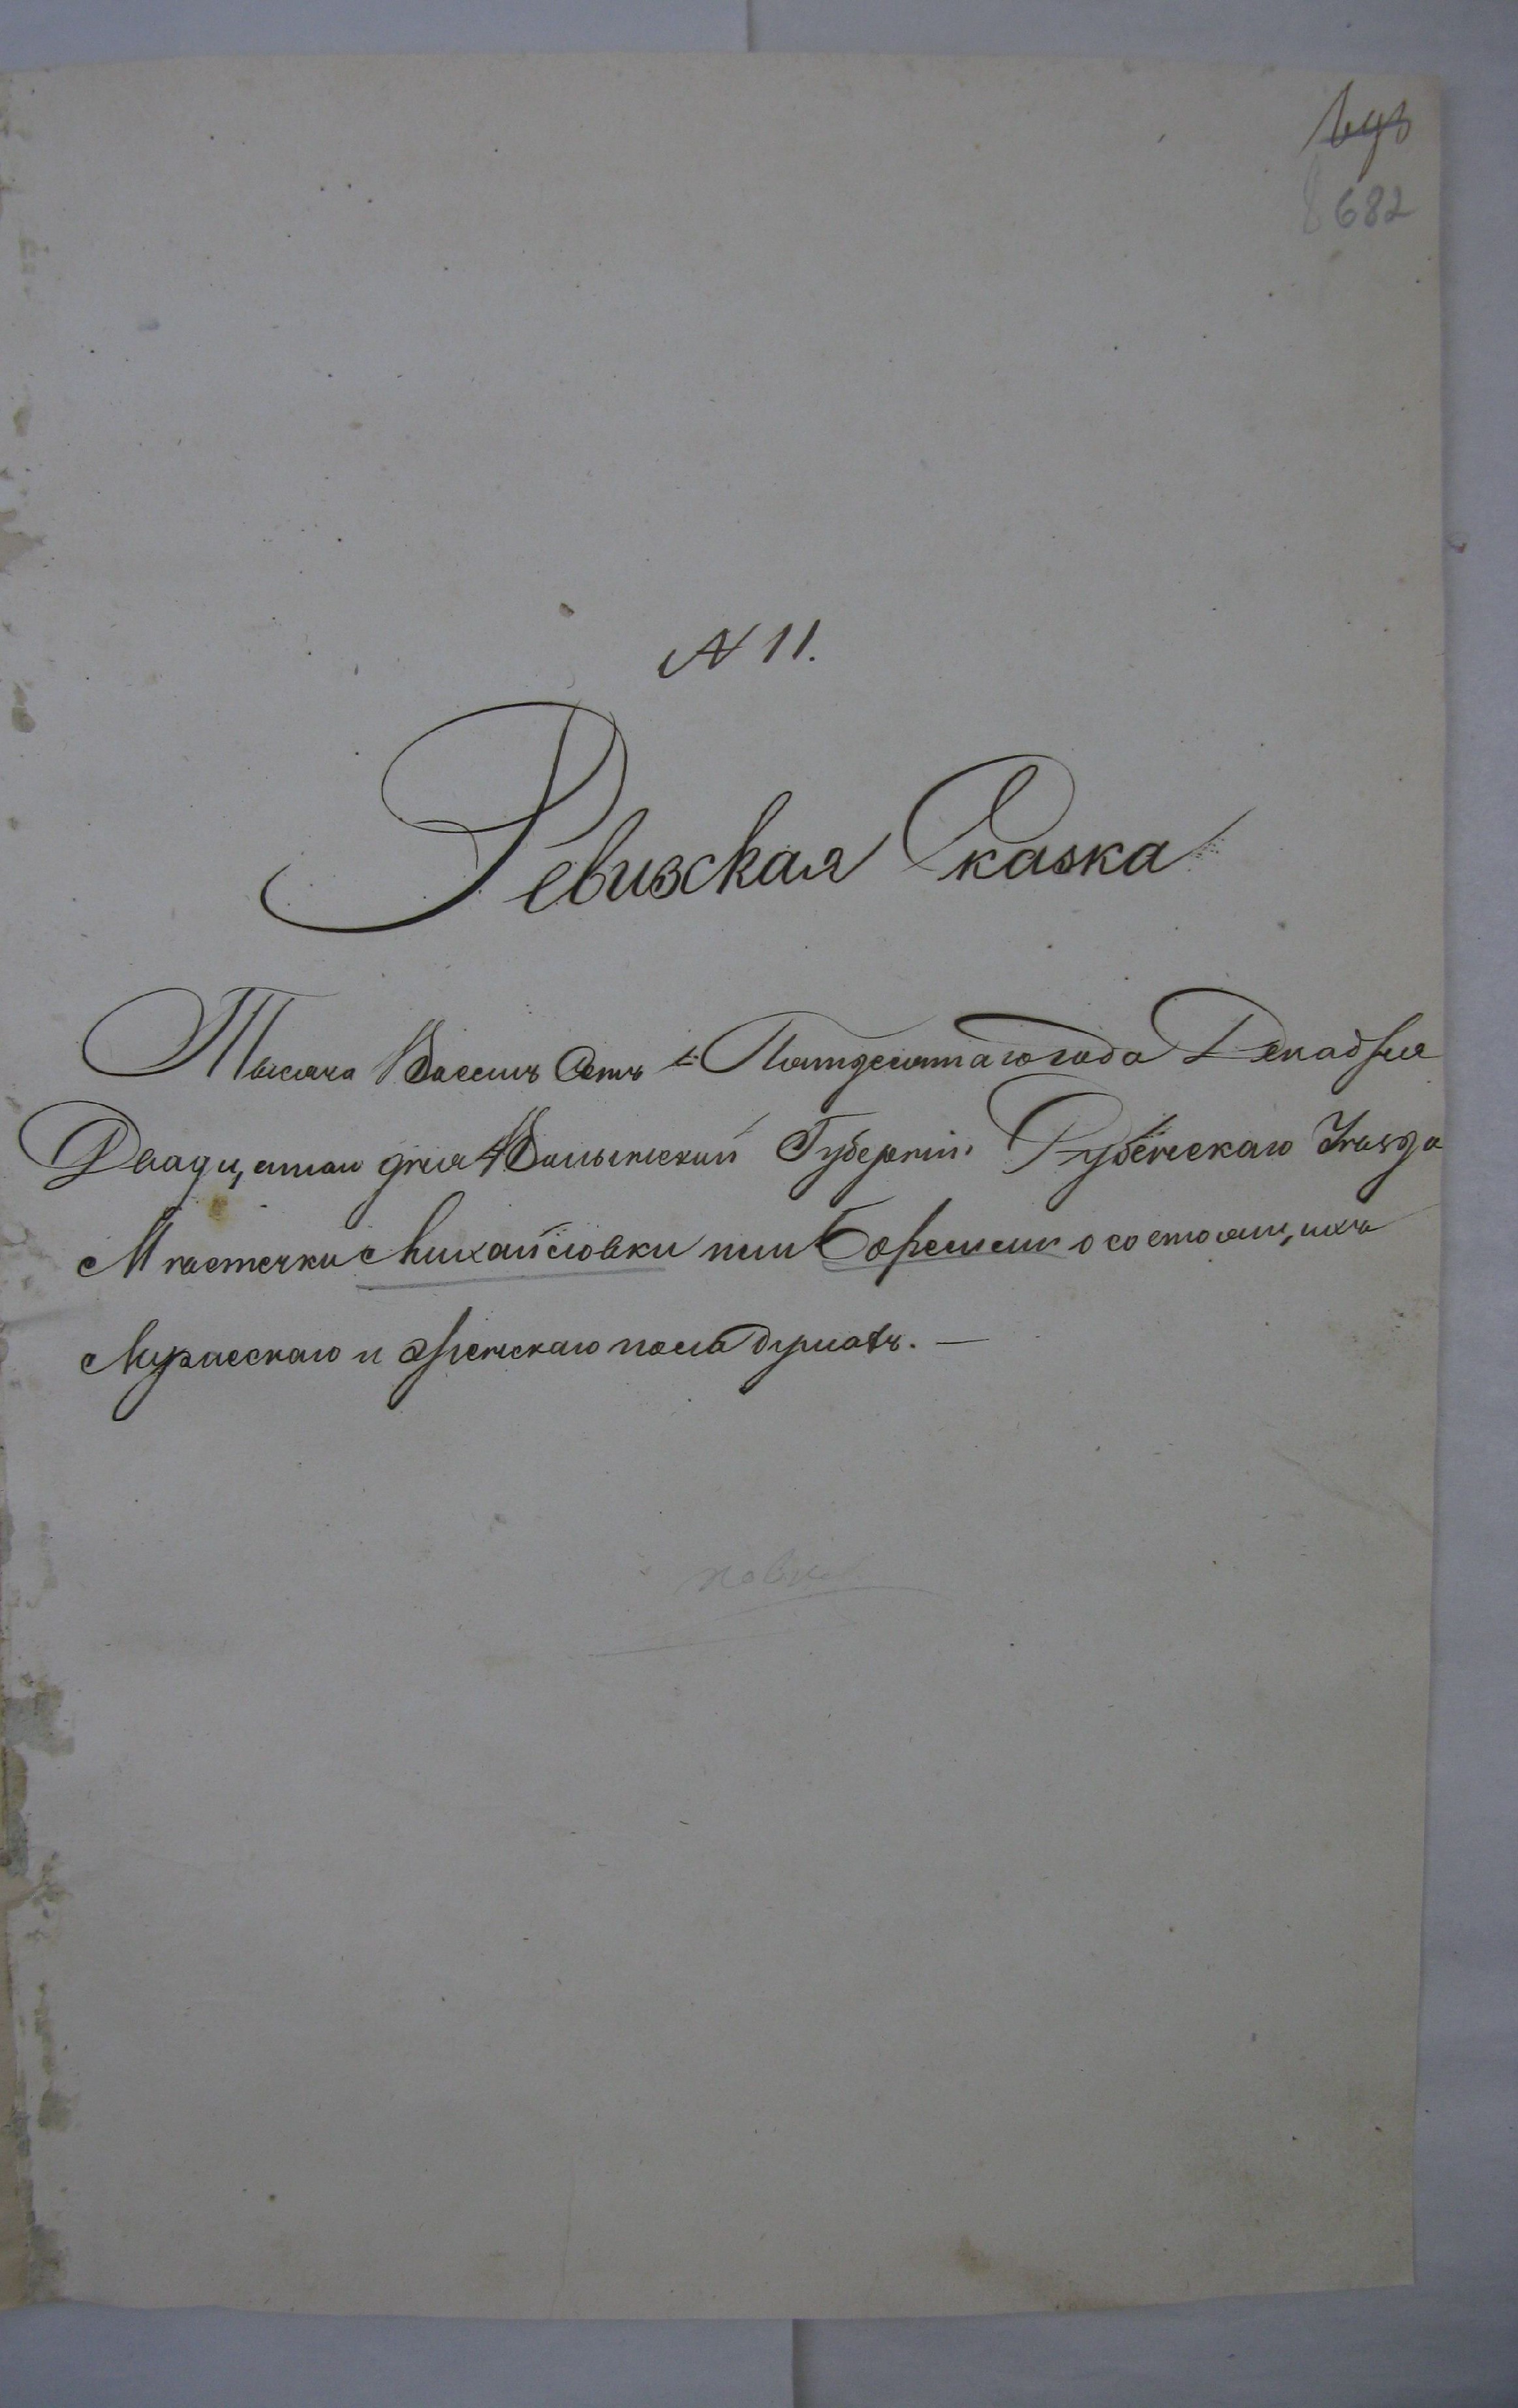 682
N 11.
Ревизская Сказка
Тысяча Восемъ Сотъ Пятдесятаго года Декабря
Двадцатаго дня Волынской Губерніи Дубенскаго Уѣзда
Мѣстечки Михайловки или Боремель о состоящихъ
Мужескаго и Женскаго пола душахъ. —